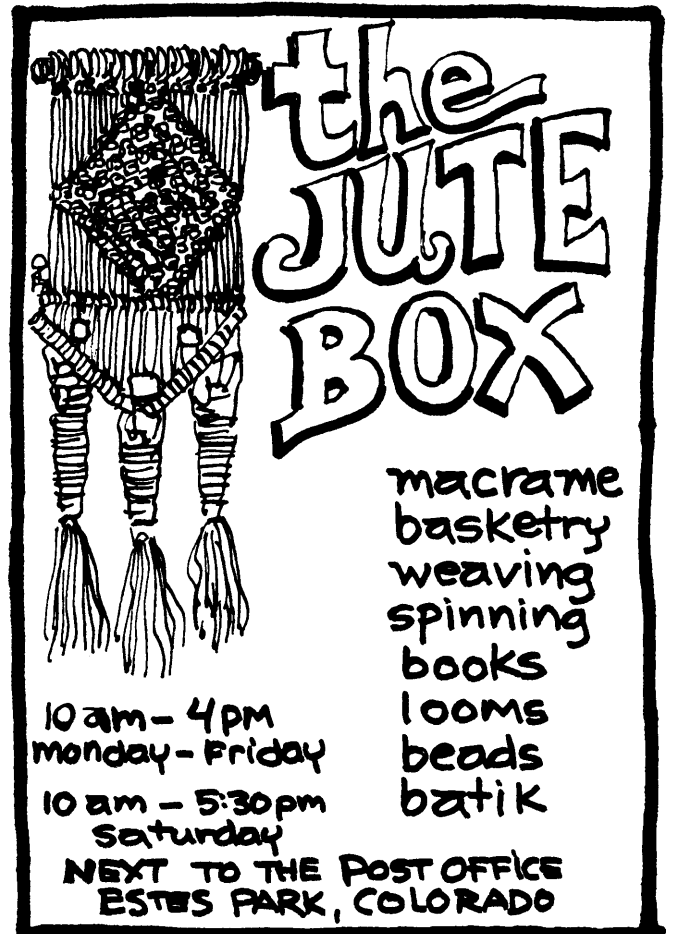 the
JUTE
BOX
macrame
basketry
weaving
spinning
books
looms
beads
batik
10 am - 4 pm
monday - Friday
10 am - 5:30 pm
saturday
NEXT TO THE POST OFFICE
ESTES PARK, COLORADO